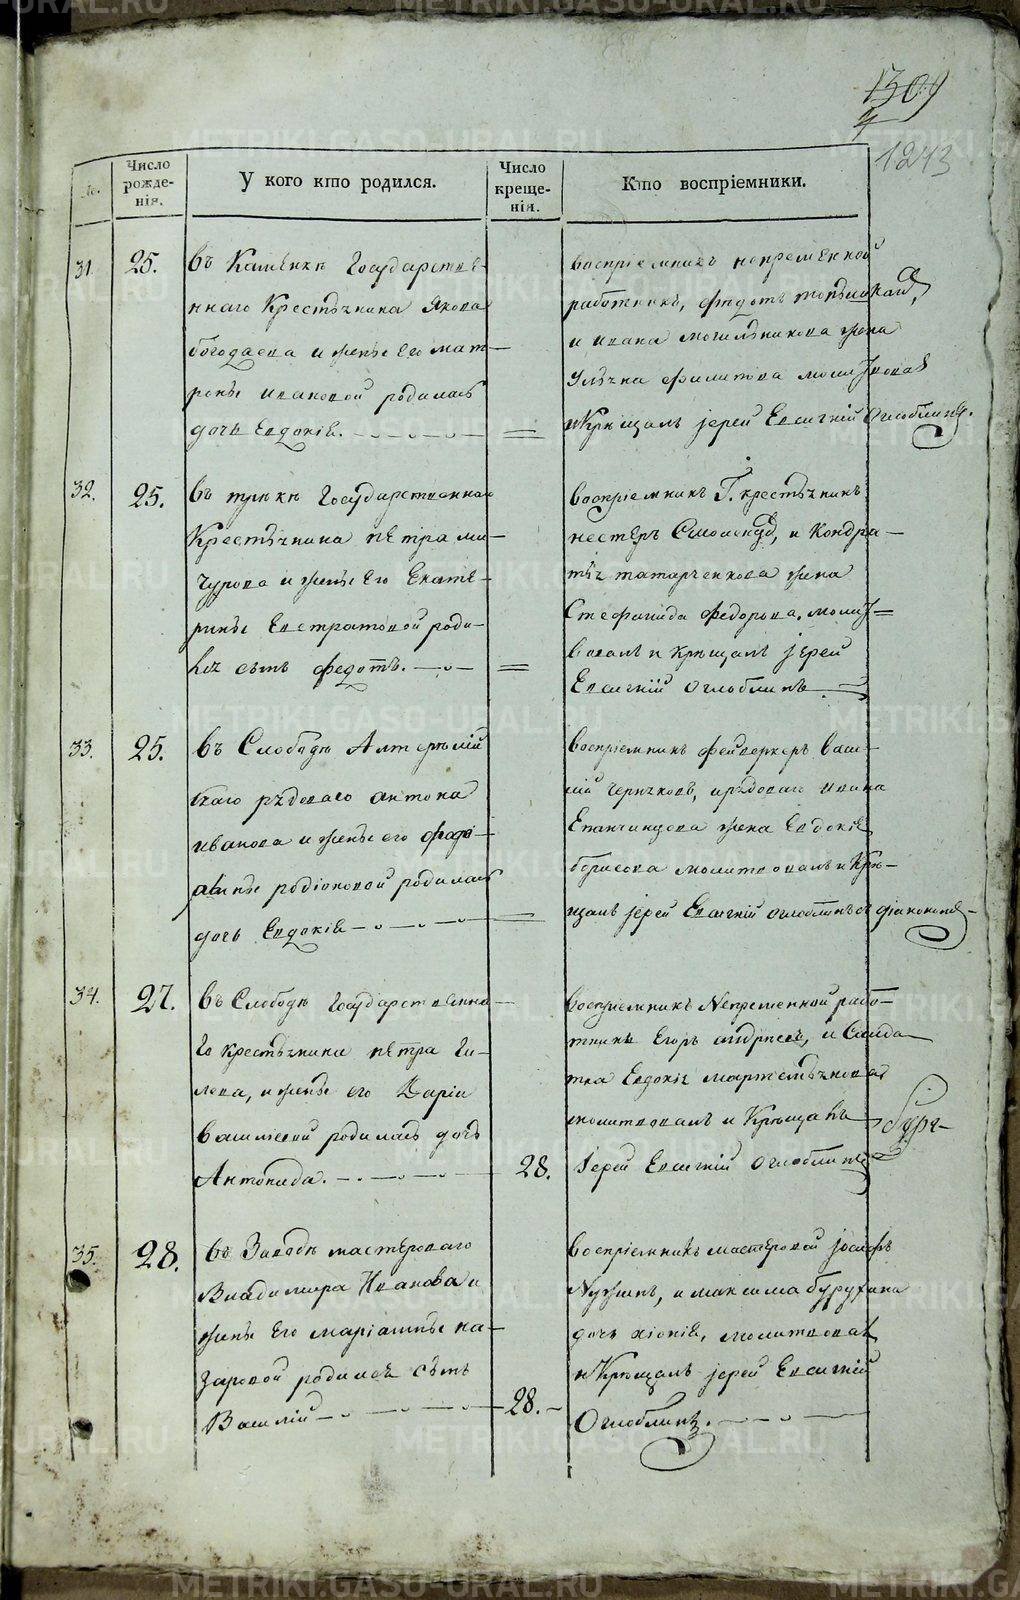 1309
1243
№.
Число рожде-нія.
У кого кто родился.
Число креще-нія.
Кто воспріемники.
31.
25.
въ Каменкѣ Государстве-
ннаго Крестьянина Якова
богодаева и жены его мат-
роны ивановой родилась
дочь Евдокія.
воспріемникъ непременной
работникъ, федотъ
и ивана могильникова жена
Ульяна филипова молитвовалъ
и Крещалъ іерей Евсигній Оглоблинъ.
32.
25.
въ Государственнаго
Крестьянина петра ми-
чурова и жены его Екате-
рины Евстратовой роди-
лся сынъ федотъ.
воспріемникъ Г. крестьянинъ
нестеръ и Кондра-
тья татарченкова жена
Стефанида федорова. молит=
вовалъ и Крещалъ іерей
Евсигній Оглоблинъ
33.
25.
въ Слободѣ Алтерелій
скаго рядоваго антона
иванова и жены его
родіоновой родилась
дочь Евдокія
воспріемникъ фейверкеръ васи-
лій черняковъ, и рядоваго ивана
Епанчинцова жена Евдокія
борисова молитвовалъ и Кре-
щалъ іерей Евсигній оглоблинъ с діакономъ
34.
27.
въ Слободѣ Государственна-
го крестьянина петра Ги-
лева, и жены его Даріи
васильевой родилась дочь
Антонида.
28.
воспріемникъ Непременной рабо-
тникъ Егоръ андреевъ, и Салда-
тка Евдокія мартемьянова
молитвовалъ и Крещалъ
Іерей Евсигній Оглоблинъ
35.
28.
въ Заводѣ мастероваго
Владимира Иванова и
жены его маріамны на-
заровой родился сынъ
Василій
28.
воспріемникъ мастеровой іосифъ
и максима бурухина
дочь хіонія, молитвовалъ
и Крещалъ іерей Евсигній
Оглоблинъ.
METRIKI.GASO-URAL.RU